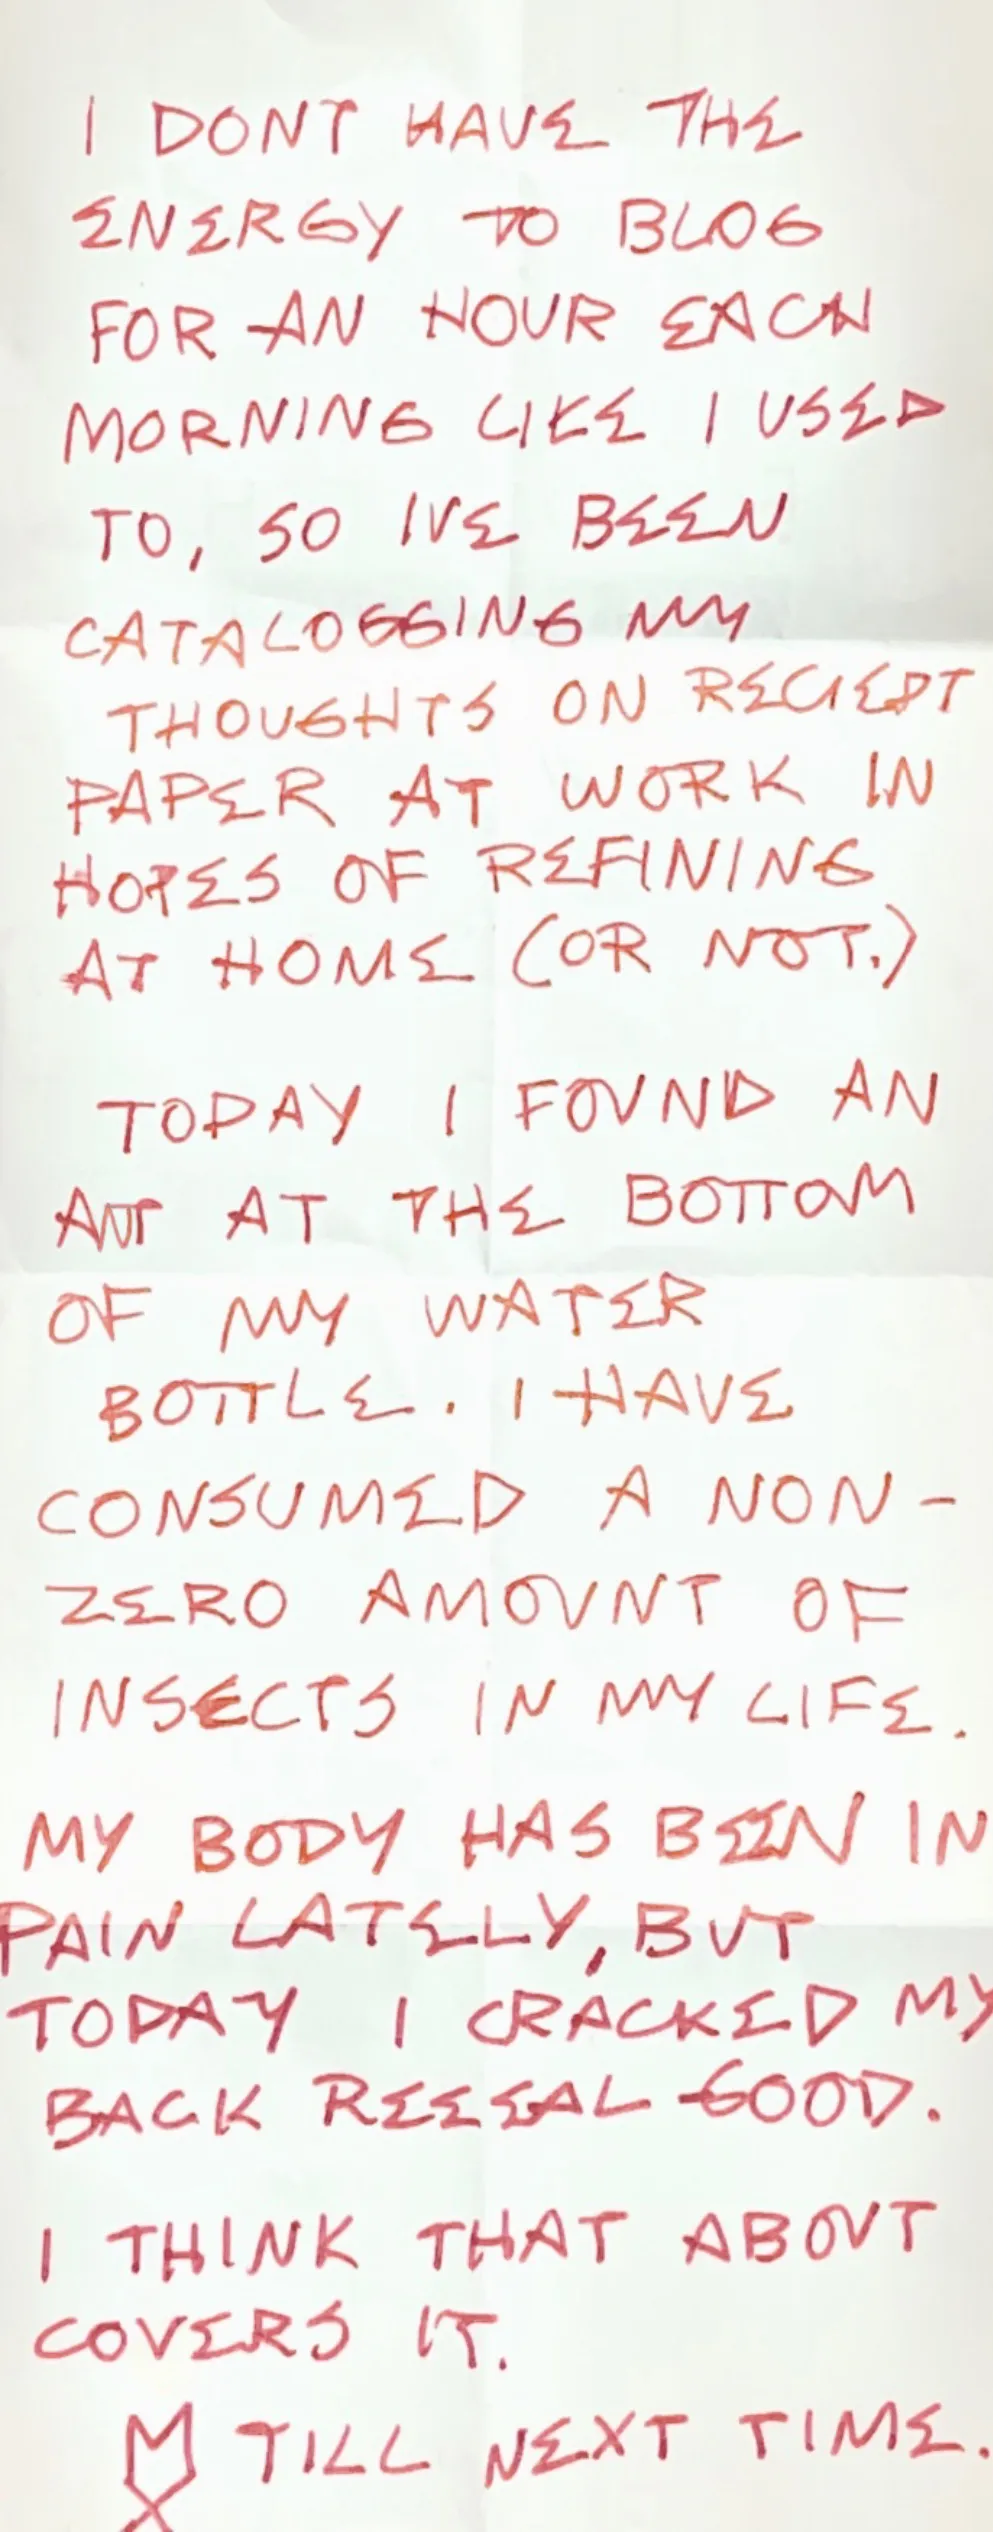 I DONT HAVE THE
ENERGY TO BLOG
FOR AN HOUR EACH
MORNING LIKE I USED
TO, SO IVE BEEN
CATALOGGING MY
THOUGHTS ON RECIEPT
PAPER AT WORK IN
HOPES OF REFINING
AT HOME (OR NOT.)
TODAY I FOUND AN
ANT AT THE BOTTOM
OF MY WATER
BOTTLE. I HAVE
CONSUMED A NON-
ZERO AMOUNT OF
INSECTS IN MY LIFE.
MY BODY HAS BEEN IN
PAIN LATELY, BUT
TODAY I CRACKED MY
BACK REEEAL GOOD.
I THINK THAT ABOUT
COVERS IT.
TILL NEXT TIME.